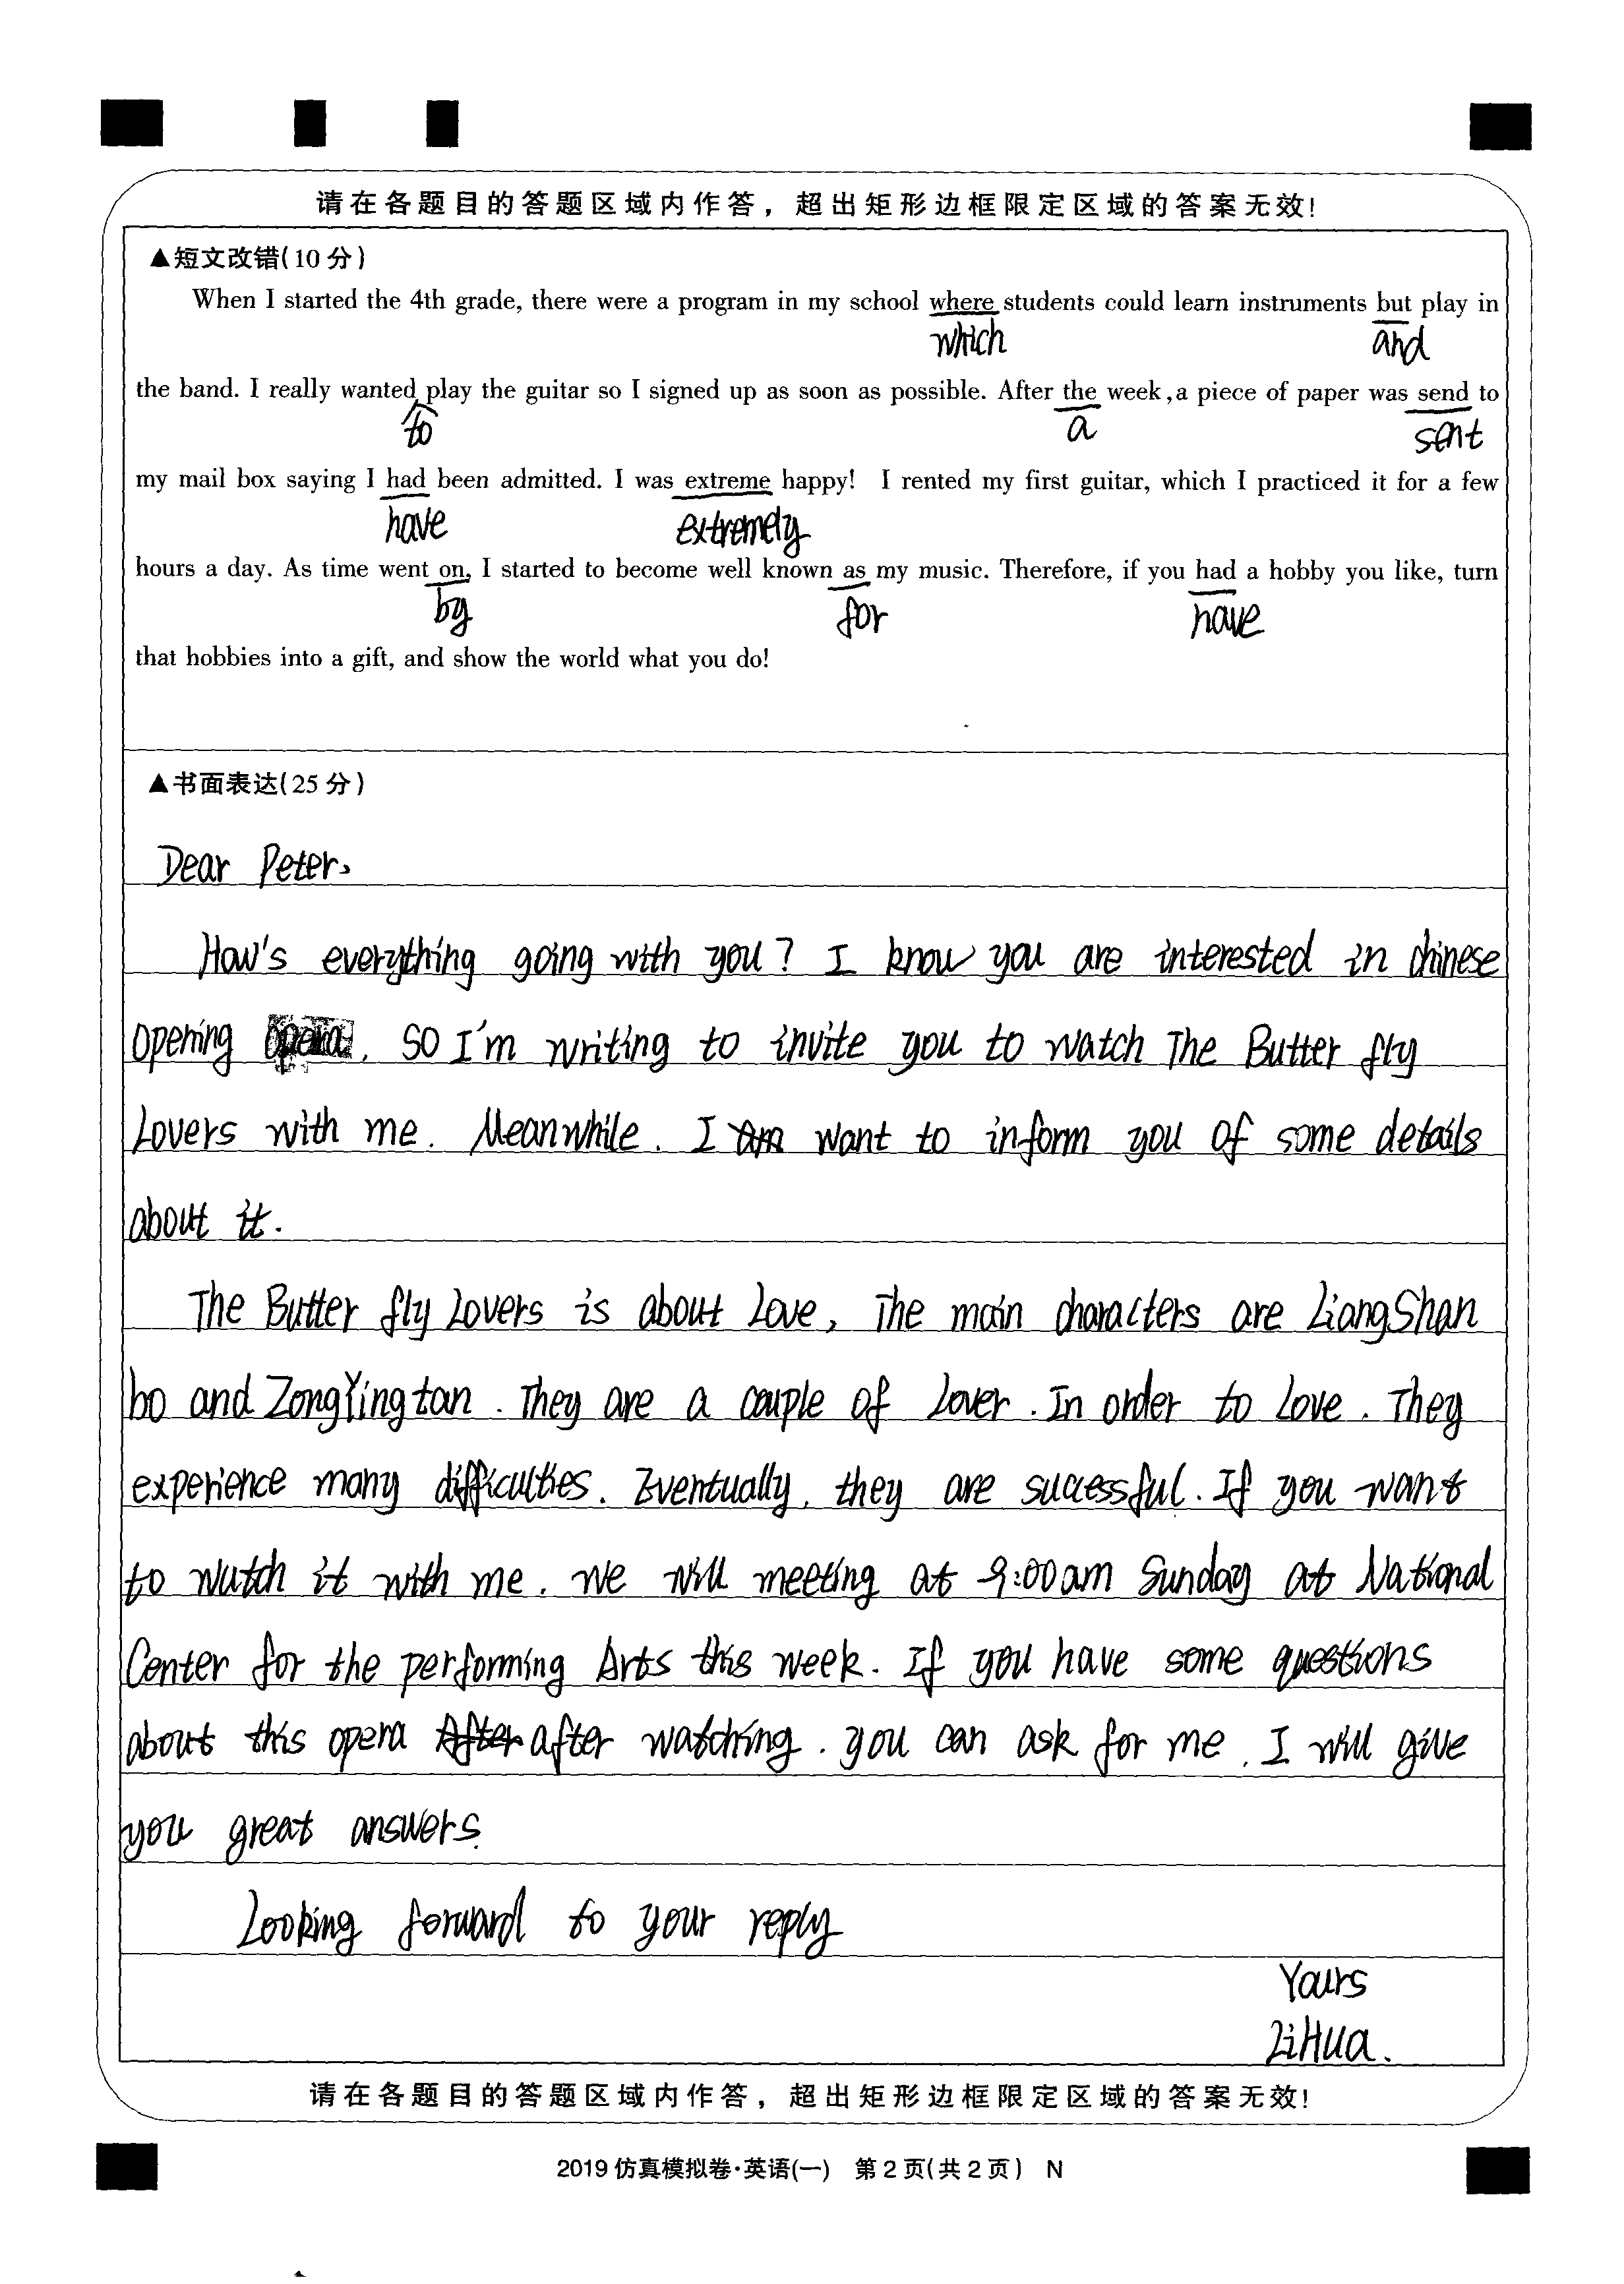 请在各题目的答题区域内作答，超出矩形边框限定区域的答案无效!
▲短文改错(10分)
When I started the 4th grade, there were a program in my school where students could learn instruments but play in
which and
the band. I really wanted play the guitar so I signed up as soon as possible. After the week,a piece of paper was send to
to a sent
my mail box saying I had been admitted. I was extreme happy! I rented my first guitar, which I practiced it for a few
have extremely
hours a day. As time went on, I started to become well known as my music. Therefore, if you had a hobby you like, turn
by for have
that hobbies into a gift, and show the world what you do!
▲书面表达(25分)
Dear Peter,
How's everything going with you? I know you are interested in chinese
opening opera. SO I'm writing to invite you to watch The Butter fly
Lovers with me. Meanwhile. I am want to inform you of some details
about it.
The Butter fly Lovers is about Love, The main characters are LiangShan
bo and ZongYingtan. They are a couple of Lover. In order to Love. They
experience many difficulties. Eventually, they are successful. If you want
to watch it with me. We will meeting at 9:00am Sunday at National
Center for the performing Arts this week. If you have some questions
about this opera After after watching. you can ask for me. I will give
you great answers.
Looking forward to your reply
Yours
LiHua.
请在各题目的答题区域内作答，超出矩形边框限定区域的答案无效!
2019仿真模拟卷·英语(一) 第2页(共2页) N